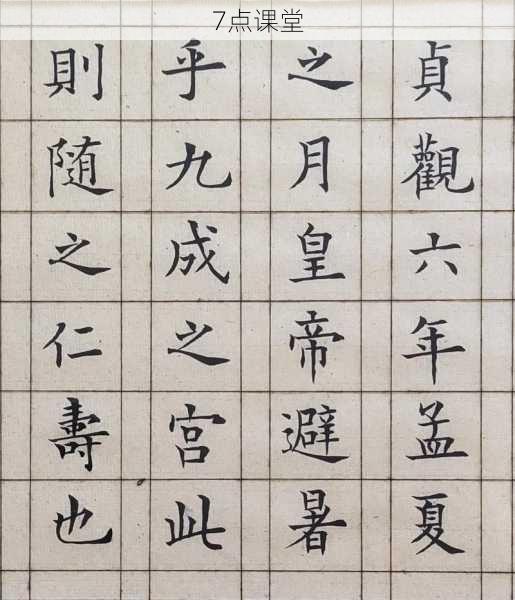 7点课堂
貞觀六年孟夏
之月皇帝避暑
乎九成之宫此
則随之仁壽也